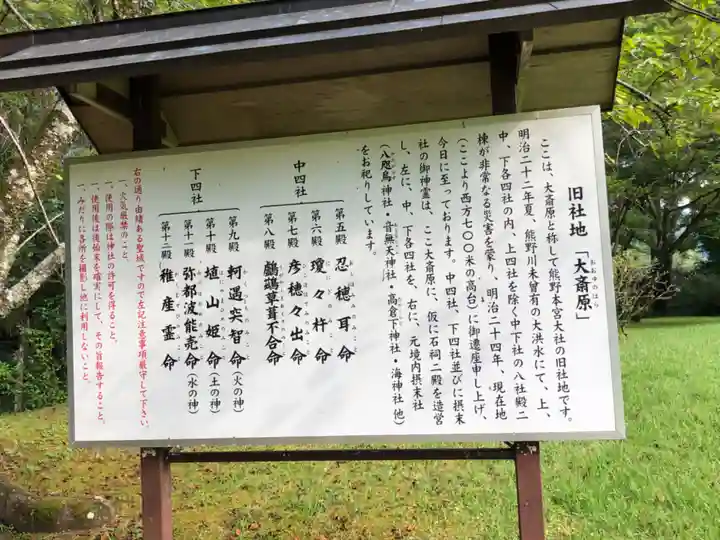 旧社地「大斎原」
おおゆのはら
ここは、大斎原と称して熊野本宮大社の旧社地です。
明治二十二年夏、熊野川未曾有の大洪水にて、上、
中、下各四社の内、上四社を除く中下社の八社殿二
棟が非常なる災害を蒙り、明治二十四年、現在地
(ここより西方七〇〇米の高台)に御遷座申し上げ、
今日に至っております。中四社、下四社並びに摂末
社の御神霊は、ここ大斎原に、仮に石祠二殿を造営
し、左に、中、下各四社を、右に、元境内摂末社
(八咫烏神社・音無天神社・高倉下神社・海神社 他)
をお祀りしています。
中四社
第五殿 忍穂耳命
第六殿 瓊々杵命
第七殿 彦穂々出命
第八殿 鸕鷀草葺不合命
下四社
第九殿 軻遇突智命(火の神)
第十殿 埴山姫命(土の神)
第十一殿 弥都波能売命(水の神)
第十二殿 稚産霊命
右の通り由緒ある聖域ですので左記注意事項厳守して下さい。
一、火気厳禁のこと。
一、使用の際は神社の許可を得ること。
一、使用後は後始末を確実にして、その旨報告すること。
一、みだりに各所を撮影し他に利用しないこと。